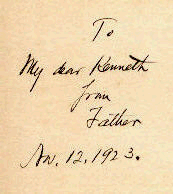 To
My dear Kenneth
from
Father
Nov. 12, 1923.